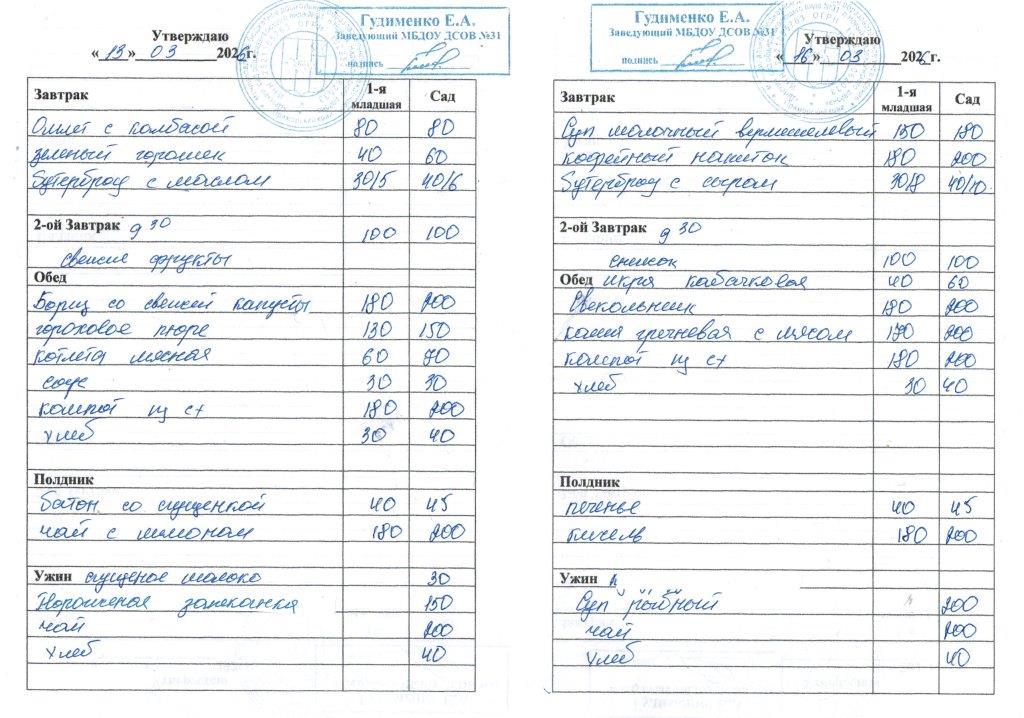 Гудименко Е.А.
Заведующий МБДОУ ДСОВ №31
подпись
Утверждаю
«13» 03 2026г.
Завтрак 1-я младшая Сад
Омлет с колбасой 80 80
зеленый горошек 40 60
Бутерброд с маслом 30/5 40/6
2-ой Завтрак 9 30 100 100
свежие фрукты
Обед
Борщ со свежей капусты 180 200
гороховое пюре 130 150
котлета мясная 60 70
соус 30 30
компот из с/х 180 200
хлеб 30 40
Полдник
Батон со сгущенкой 40 45
чай с лимоном 180 200
Ужин сгущеное молоко 30
Творожная запеканка 150
чай 200
хлеб 40
Гудименко Е.А.
Заведующий МБДОУ ДСОВ №31
подпись
Утверждаю
«16» 03 2026г.
Завтрак 1-я младшая Сад
Суп молочный вермешелевый 150 180
кофейный напиток 180 200
Бутерброд с сыром 30/8 40/10
2-ой Завтрак 9 30
снежок 100 100
Обед икра кабачковая 40 60
Свекольник 180 200
каша гречневая с мясом 180 200
компот из с/х 180 200
хлеб 30 40
Полдник
печенье 40 45
кисель 180 200
Ужин
Суп рыбный 200
чай 200
хлеб 40